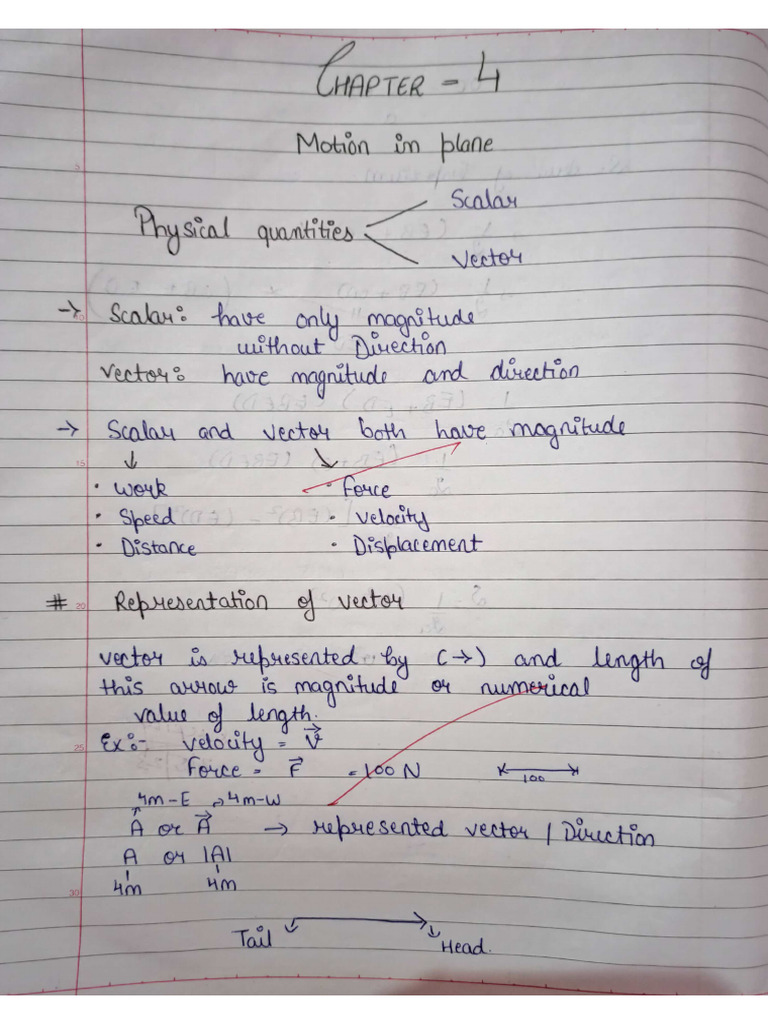 CHAPTER - 4
Motion in plane
Scalar
Physical quantities
Vector
→ Scalar: have only magnitude
without Direction
Vector: have magnitude and direction
→ Scalar and vector both have magnitude
↓ ↘
• Work • Force
• Speed • Velocity
• Distance • Displacement
# Representation of vector
vector is represented by (→) and length of
this arrow is magnitude or numerical
value of length.
Ex:- velocity = V⃗
Force = F⃗ = 100 N 100
4m-E 4m-W
Â or A⃗ → represented vector / Direction
A or |A|
4m 4m
Tail Head.
5
10
15
20
25
30